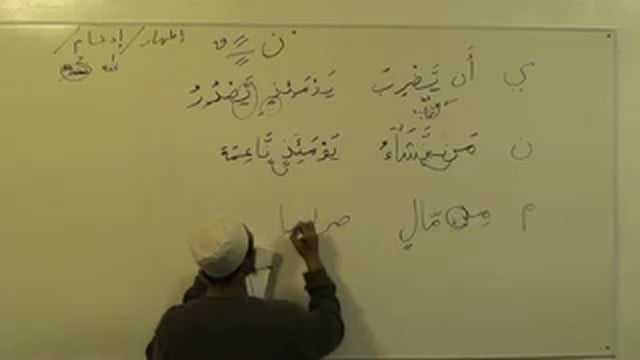 ن اظهار / إدغام /
ي أَن يَّضْرِبَ يَوْمَئِذٍ يَّصْدُرُ
ن مَن نَّشَآءُ يَوْمَئِذٍ نَّاعِمَة
م مِن مَّالٍ